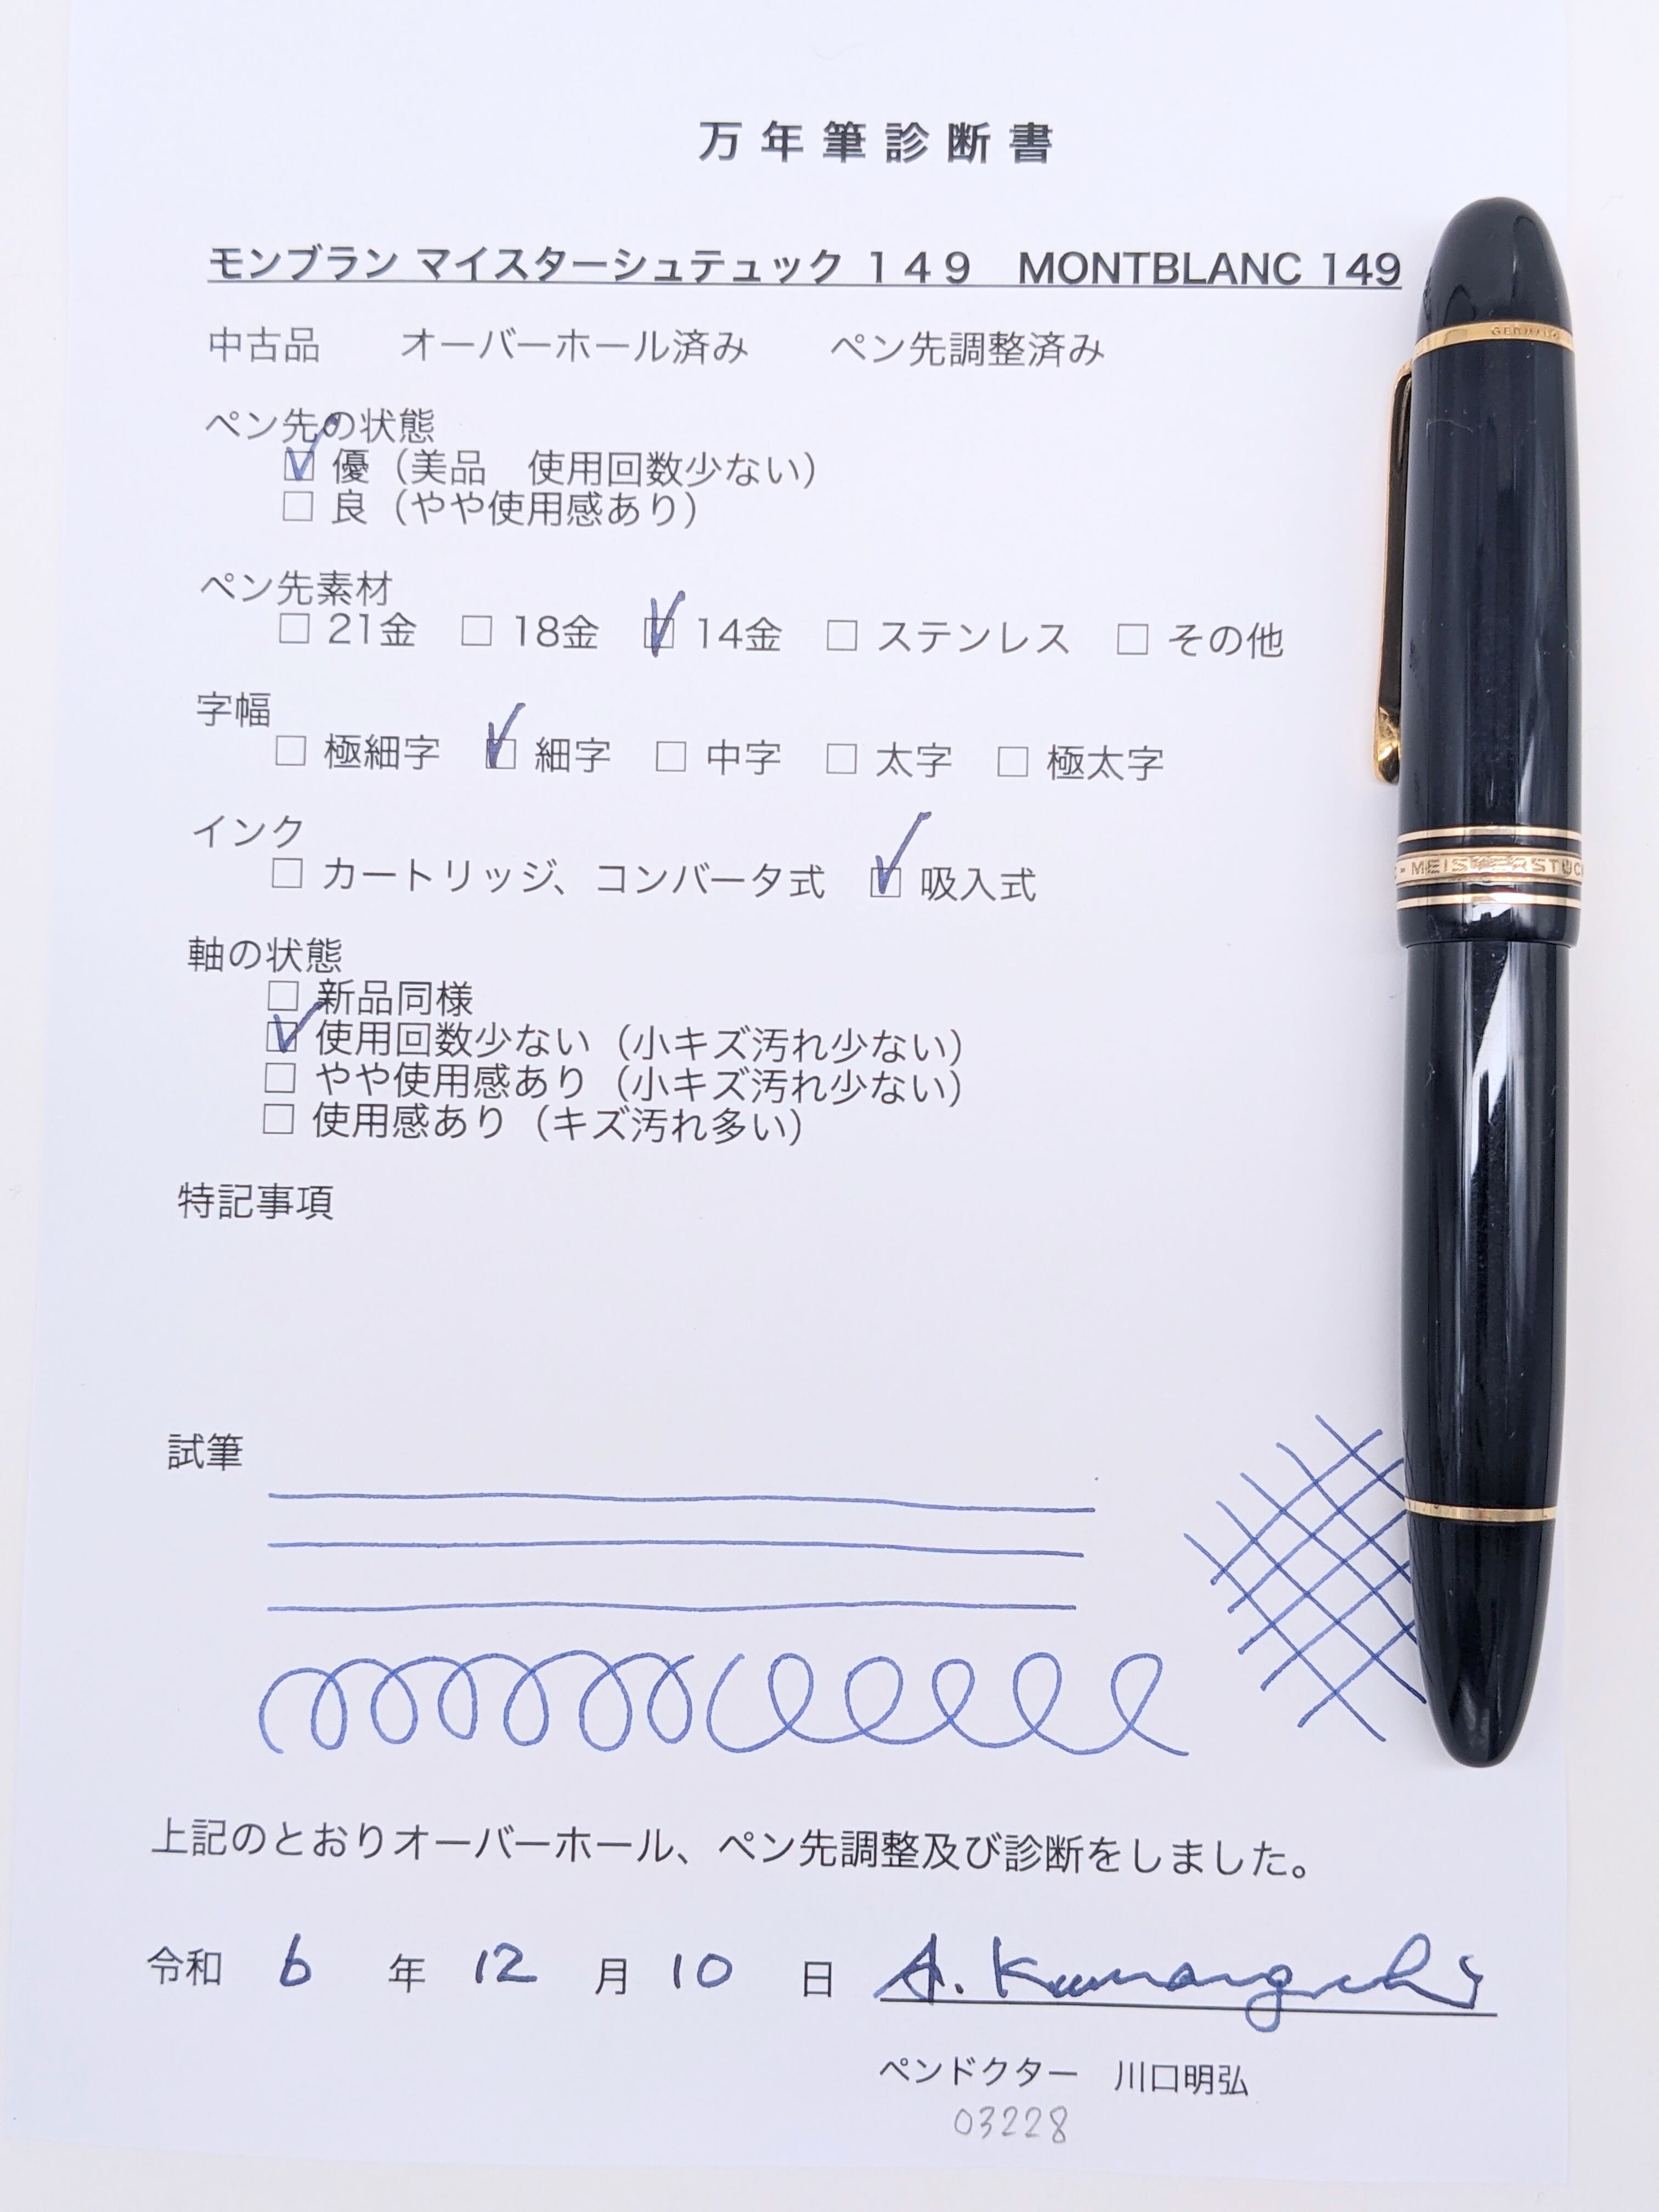 万年筆診断書
モンブラン マイスターシュテュック １４９　MONTBLANC 149
中古品　　オーバーホール済み　　ペン先調整済み
ペン先の状態
☑ 優（美品　使用回数少ない）
☐ 良（やや使用感あり）
ペン先素材
☐ 21金　☐ 18金　☑ 14金　☐ ステンレス　☐ その他
字幅
☐ 極細字　☑ 細字　☐ 中字　☐ 太字　☐ 極太字
インク
☐ カートリッジ、コンバータ式　☑ 吸入式
軸の状態
☐ 新品同様
☑ 使用回数少ない（小キズ汚れ少ない）
☐ やや使用感あり（小キズ汚れ少ない）
☐ 使用感あり（キズ汚れ多い）
特記事項
試筆
上記のとおりオーバーホール、ペン先調整及び診断をしました。
令和 6 年 12 月 10 日 A. Kawaguchi
ペンドクター　川口明弘
03228
GERMANY
- MEISTERSTÜCK